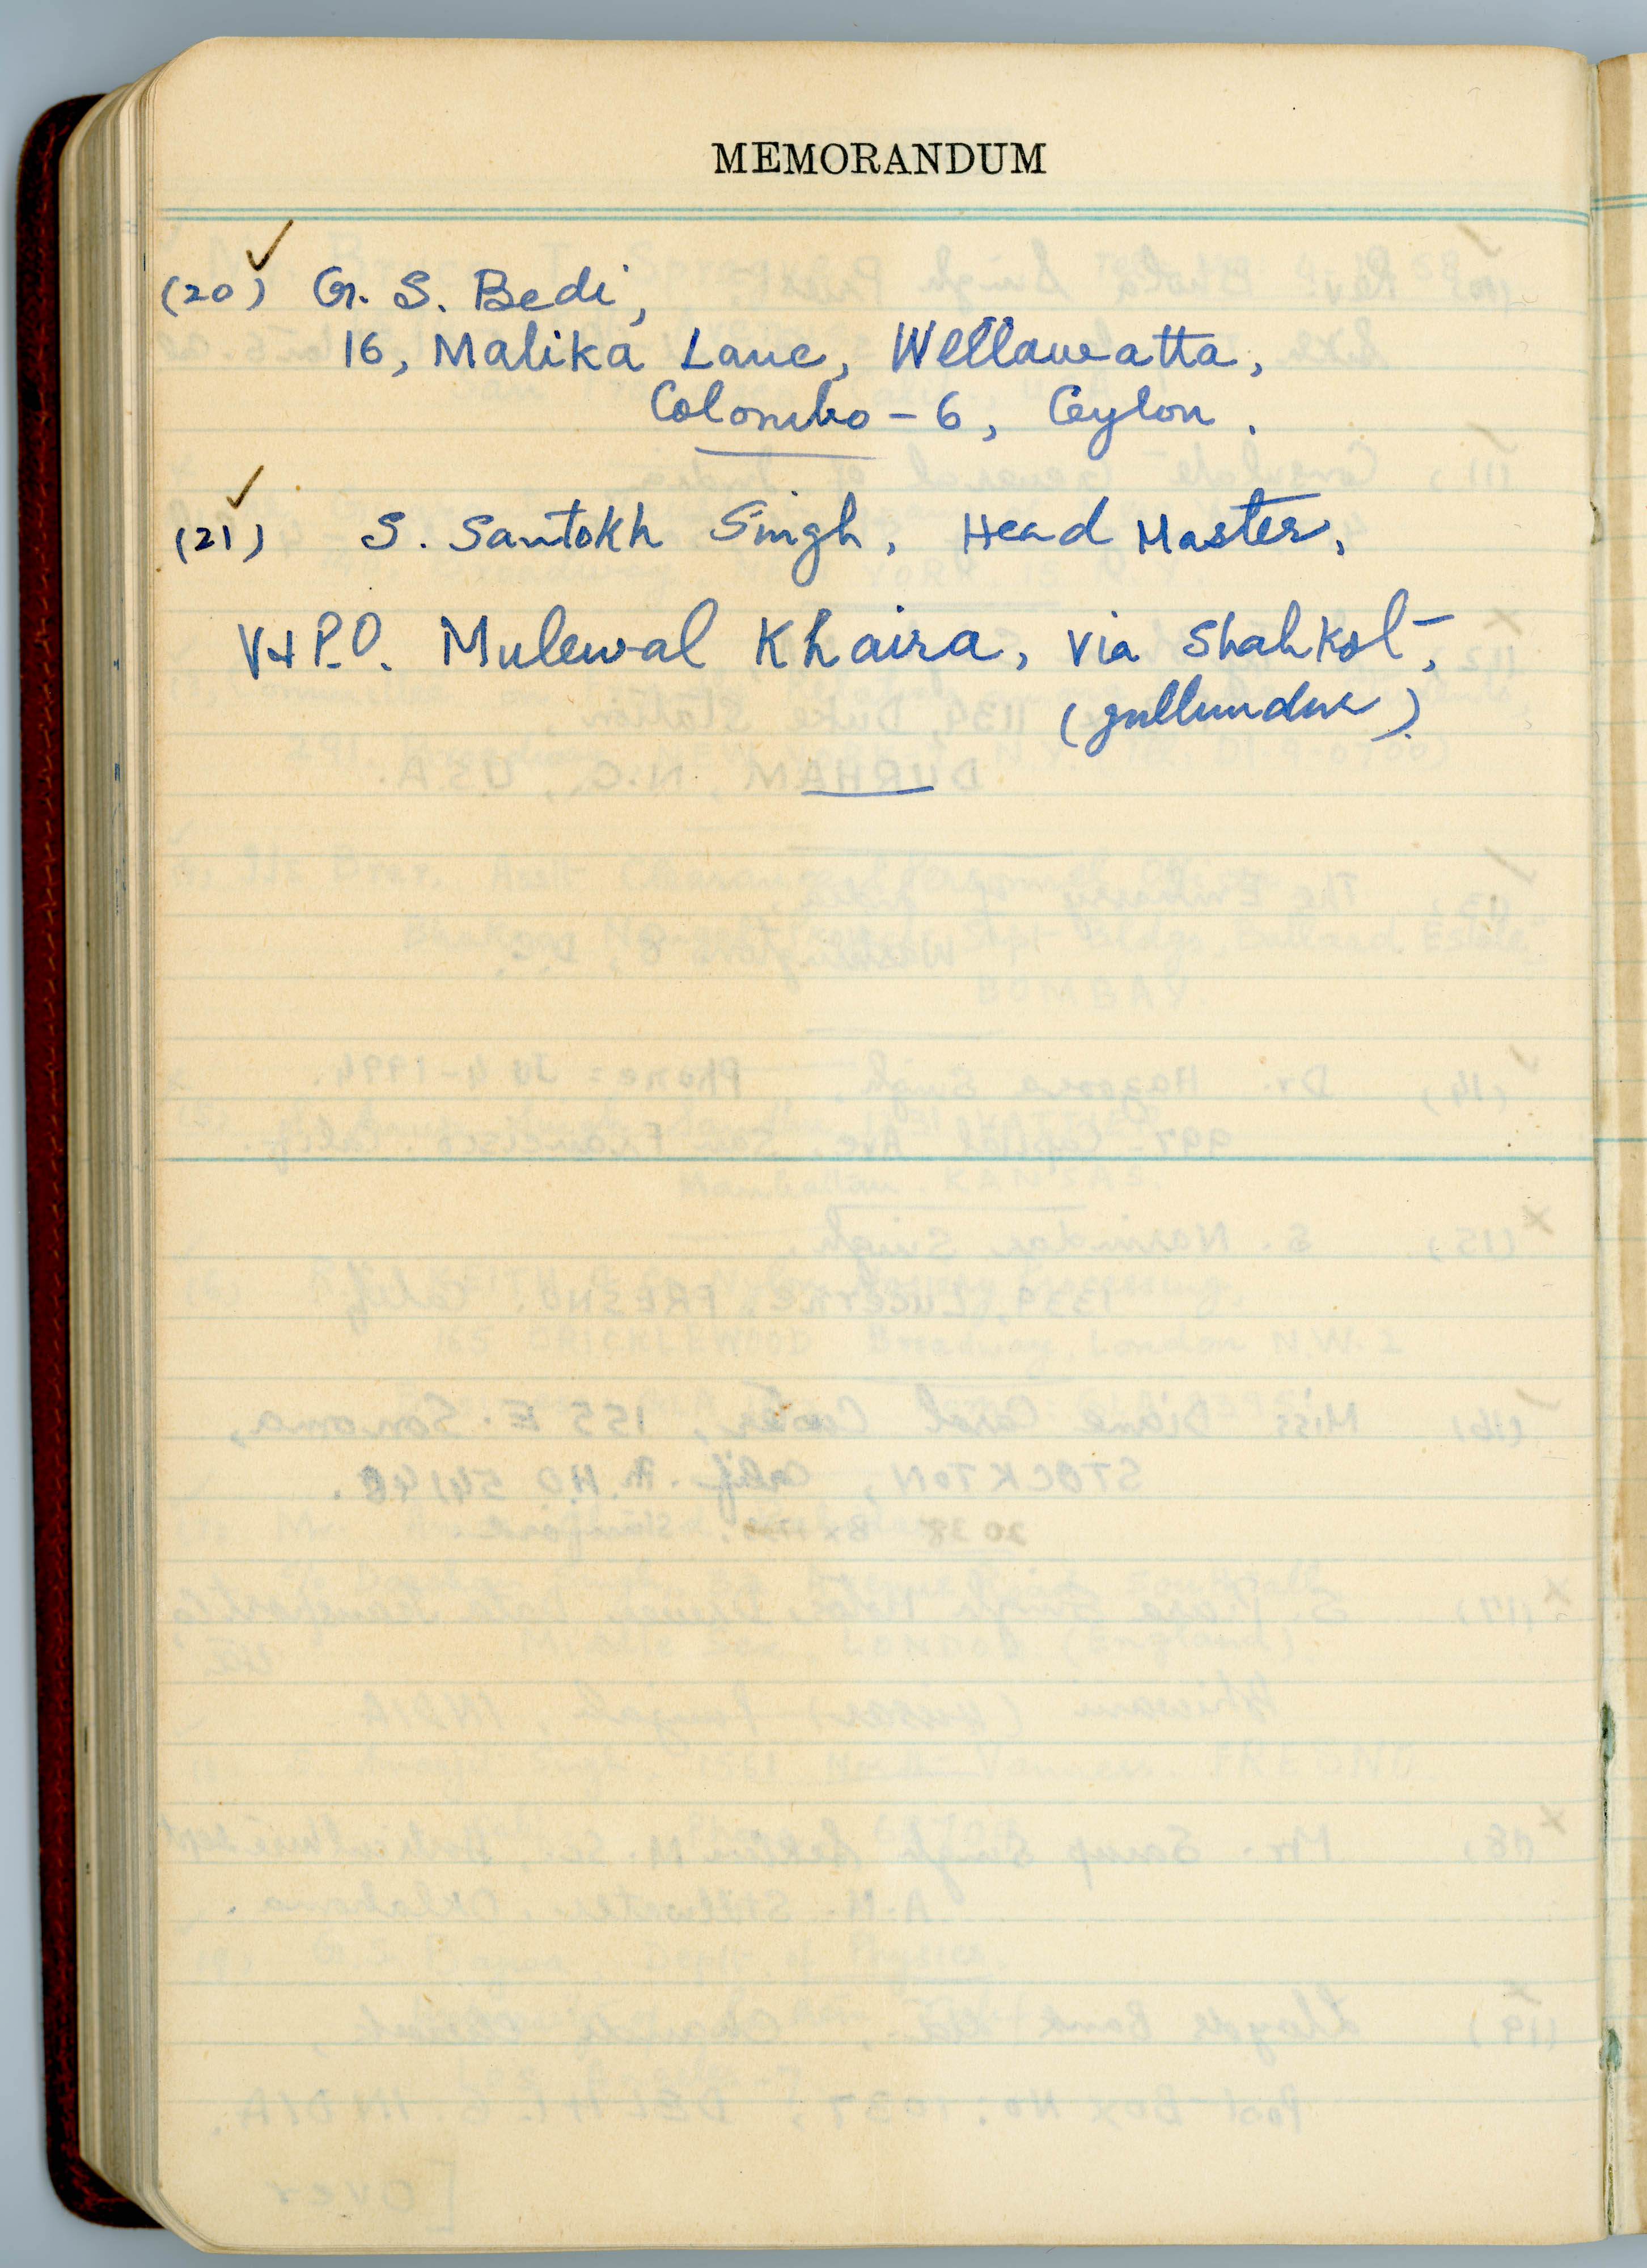 MEMORANDUM
(20) G. S. Bedi,
16, Malika Lane, Wellawatta,
Colombo - 6, Ceylon.
(21) S. Santokh Singh, Head Master,
V & P.O. Mulewal Khaira, via Shahkot,
(Jullundur).